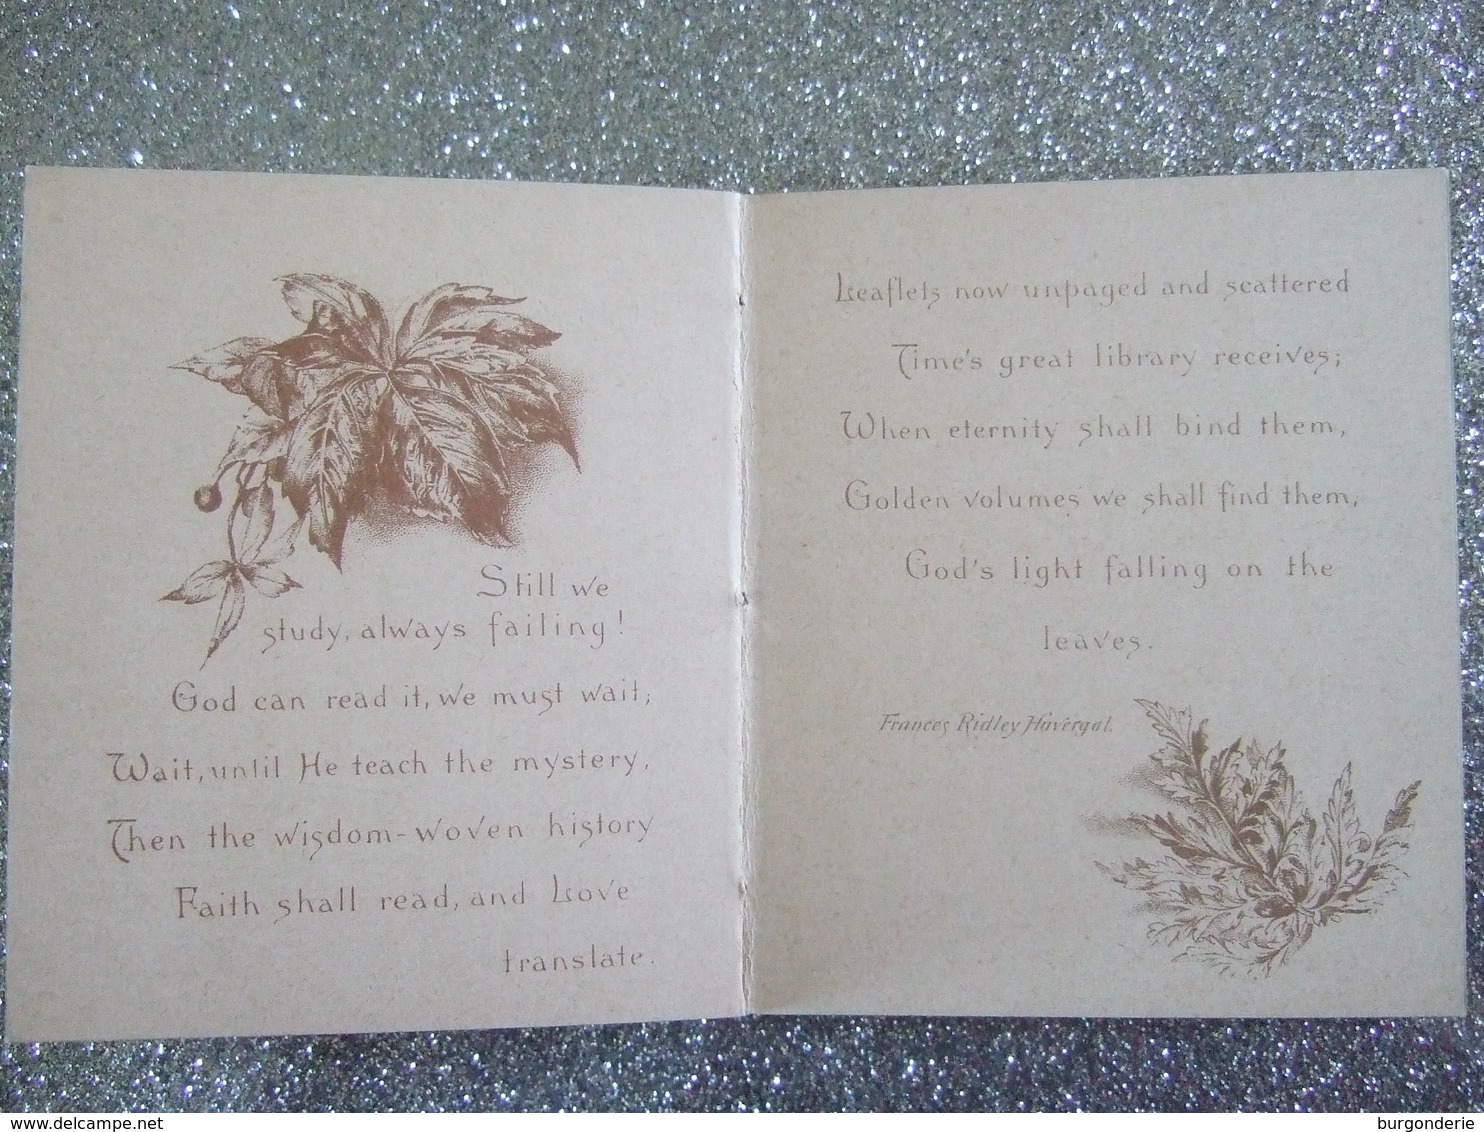 Still we
study, always failing!
God can read it, we must wait;
Wait, until He teach the mystery,
Then the wisdom-woven history
Faith shall read, and Love
translate.
Leaflets now unpaged and scattered
Time's great library receives;
When eternity shall bind them,
Golden volumes we shall find them,
God's light falling on the
leaves.
Frances Ridley Havergal.
delcampe.net
burgonderie